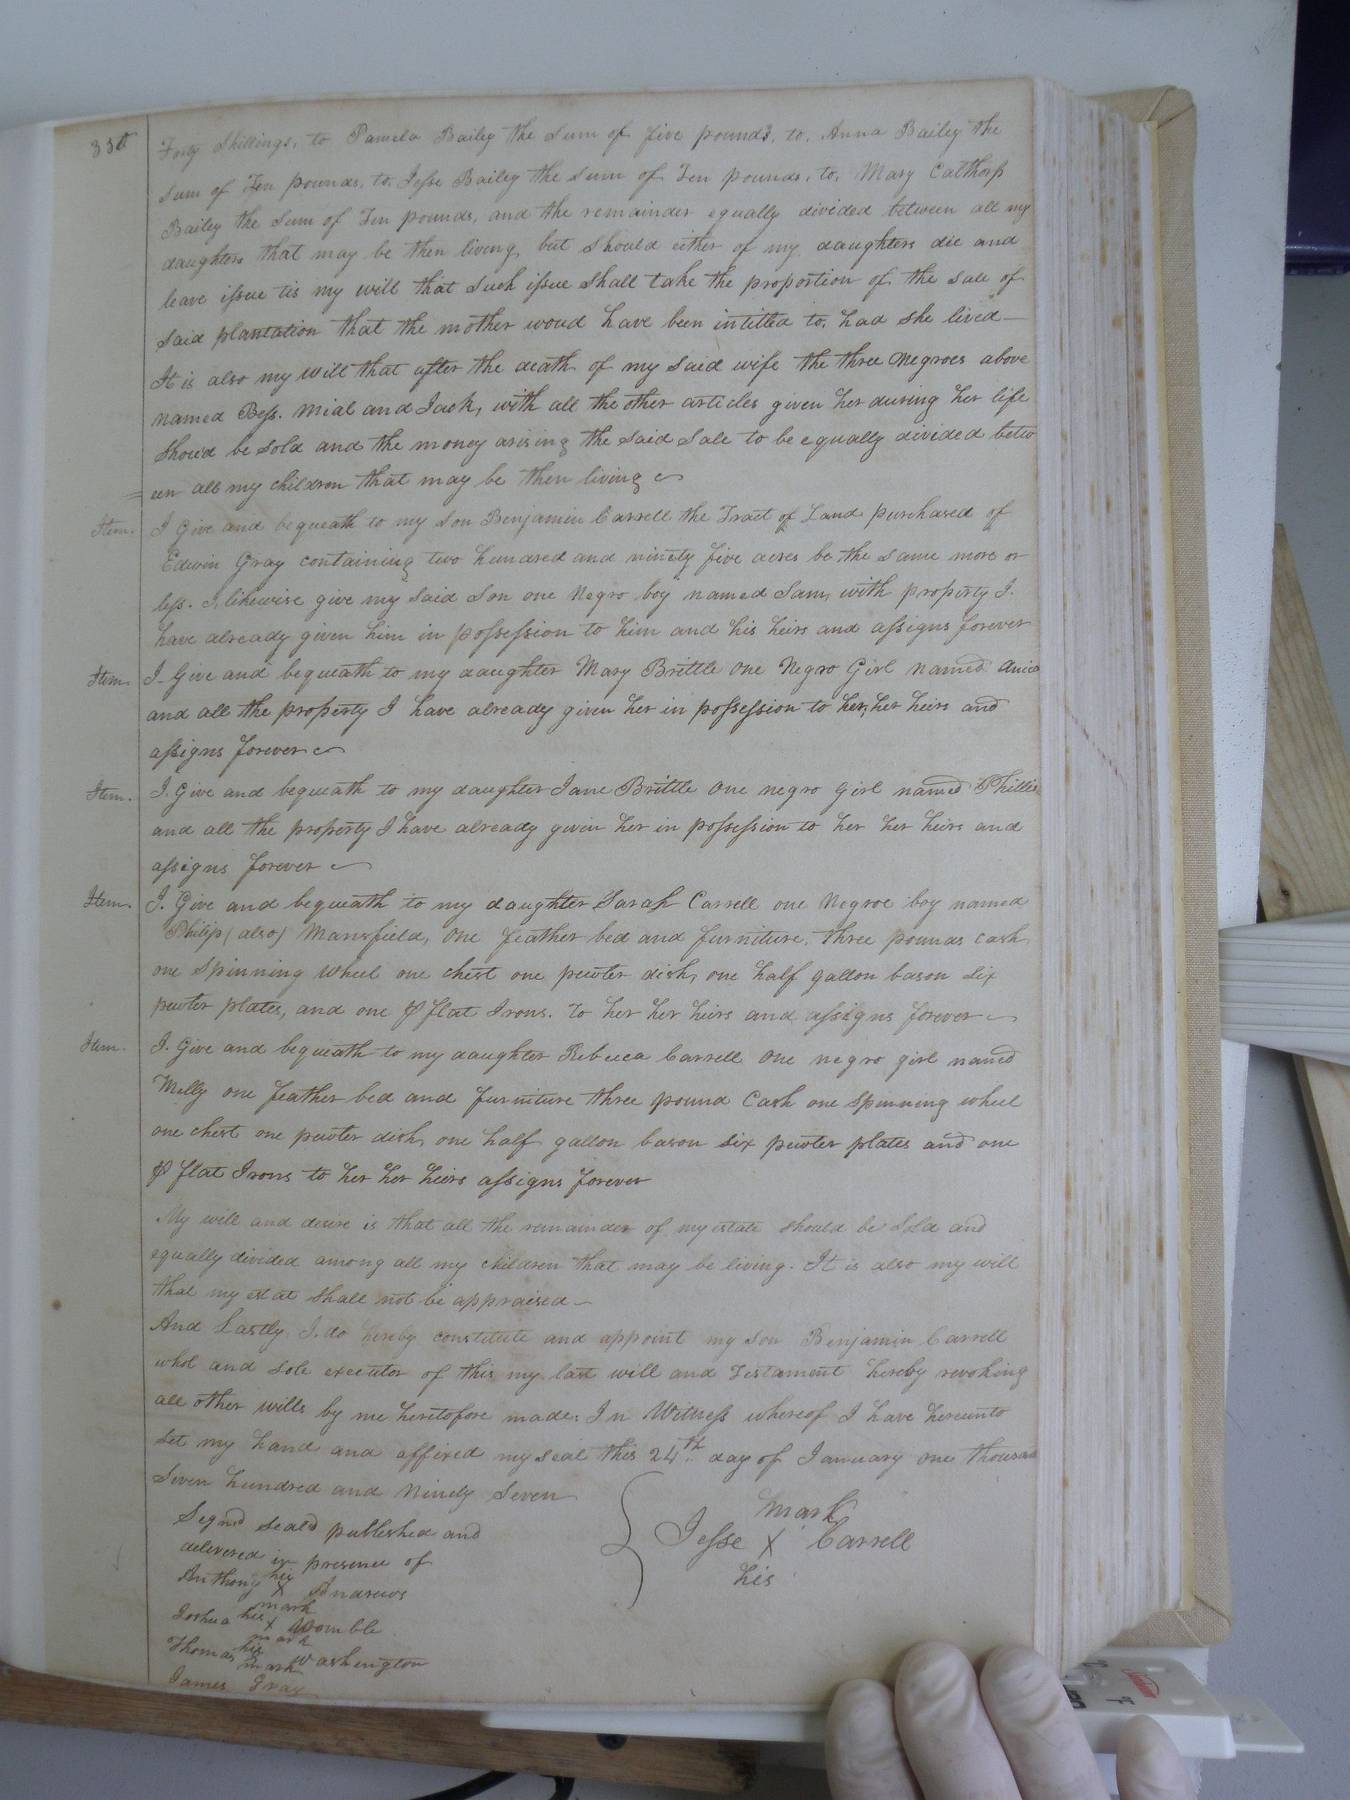 Forty Shillings, to Pamela Bailey the sum of five pounds, to, Anna Bailey the
sum of Ten pounds, to, Jesse Bailey the sum of Ten pounds, to, Mary Calthorp
Bailey the sum of Ten pounds, and the remainder equally divided between all my
daughters that may be then living, but should either of my daughters die and
leave issue tis my will that such issue shall take the proportion of the sale of
said plantation that the mother woud have been intitled to, had she lived—
It is also my will that after the death of my said wife the three Negroes above
named Bess. Mial and Jack, with all the other articles given her during her life
shoud be sold and the money arising the said sale to be equally divided betw
= een all my children that may be then living
Item. I Give and bequeath to my son Benjamin Carrell the Tract of Land purchased of
Edwin Gray containing two hundred and ninety five acres be the same more or
less. I likewise give my said son one Negro boy named Sam, with property I.
have already given him in possession to him and his heirs and assigns forever
Item. I Give and bequeath to my daughter Mary Brittle one Negro Girl named
and all the property I have already given her in possession to her, her heirs and
assigns forever
Item. I. Give and bequeath to my daughter Jane Brittle one negro Girl named Phillis
and all the property I have already given her in possession to her her heirs and
assigns forever
Item. I. Give and bequeath to my daughter Sarah Carrell one Negroe boy named
Philip (also) Mansfield, one feather bed and furniture, three pounds cash
one spinning wheel one chest one pewter dish, one half gallon bason six
pewter plates, and one pr flat Irons. to her her heirs and assigns forever
Item. I. Give and bequeath to my daughter Rebecca Carrell one negro girl named
Milly one feather bed and furniture three pound Cash one spinning wheel
one chest one pewter dish, one half gallon bason six pewter plates and one
pr flat Irons to her her heirs assigns forever
My will and desire is that all the remainder of my estate should be sold and
equally divided among all my children that may be living. It is also my will
that my estat shall not be appraised—
And Lastly, I. do hereby constitute and appoint my son Benjamin Carrell
whol and sole executor of this my last will and Testament hereby revoking
all other wills by me heretofore made: In Witness whereof I have hereunto
set my hand and affixed my seal this 24th day of January one thousand
Seven hundred and Ninety Seven
Signd seald published and
delivered in presence of
Anthony his X mark Andrews
Joshua his X mark Womble
Thomas his mark Washington
James Gray
mark
Jesse X Carrell
his